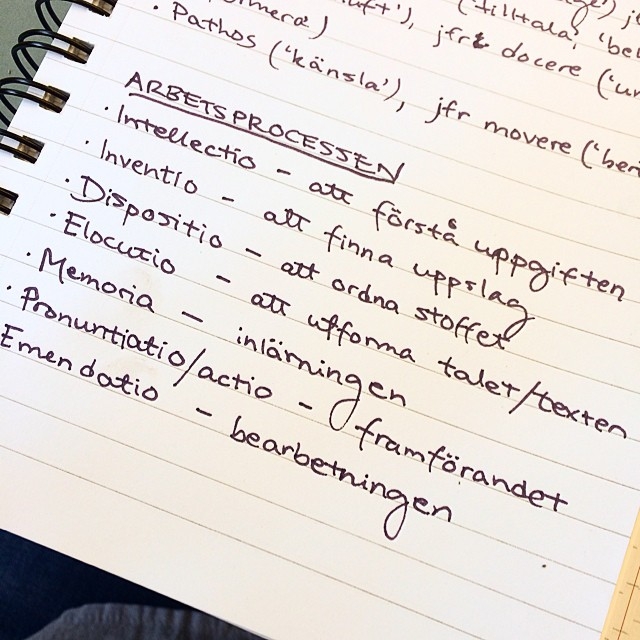 luft'), ('tilltala'
· Pathos ('känsla'), jfr docere
jfr movere
ARBETSPROCESSEN
· Intellectio – att förstå uppgiften
· Inventio – att finna uppslag
· Dispositio – att ordna stoffet
· Elocutio – att utforma talet/texten
· Memoria – inlärningen
· Pronuntiatio/actio – framförandet
Emendatio – bearbetningen